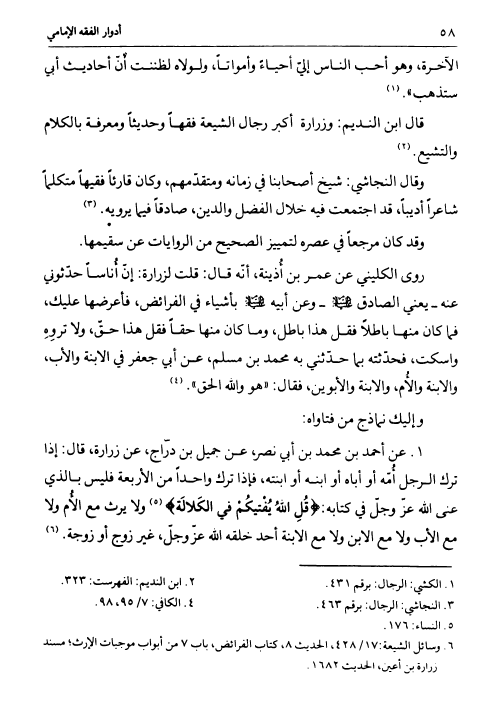 ٥٨
أدوار الفقه الإمامي
الآخرة، وهو أحب الناس إليّ أحياءً وأمواتاً، ولولاه لظننت أنّ أحاديث أبي
ستذهب». (١)
قال ابن النديم: وزرارة أكبر رجال الشيعة فقهاً وحديثاً ومعرفة بالكلام
والتشيع. (٢)
وقال النجاشي: شيخ أصحابنا في زمانه ومتقدّمهم، وكان قارئاً فقيهاً متكلماً
شاعراً أديباً، قد اجتمعت فيه خلال الفضل والدين، صادقاً فيما يرويه. (٣)
وقد كان مرجعاً في عصره لتمييز الصحيح من الروايات عن سقيمها.
روى الكليني عن عمر بن أُذينة، أنّه قال: قلت لزرارة: إنّ أُناساً حدّثوني
عنه ـ يعني الصادق ـ وعن أبيه بأشياء في الفرائض، فأعرضها عليك،
فما كان منها باطلاً فقل هذا باطل، وما كان منها حقاً فقل هذا حقّ، ولا تروِه
واسكت، فحدّثته بما حدّثني به محمد بن مسلم، عن أبي جعفر في الابنة والأب،
والابنة والأُم، والابنة والأبوين، فقال: «هو والله الحق». (٤)
وإليك نماذج من فتاواه:
١. عن أحمد بن محمد بن أبي نصر، عن جميل بن درّاج، عن زرارة، قال: إذا
ترك الرجل أُمّه أو أباه أو ابنه أو ابنته، فإذا ترك واحداً من الأربعة فليس بالذي
عنى الله عزّ وجلّ في كتابه: ﴿قُلِ اللهُ يُفْتيكُمْ في الكَلالَة﴾ (٥) ولا يرث مع الأُم ولا
مع الأب ولا مع الابن ولا مع الابنة أحد خلقه الله عزّ وجلّ، غير زوج أو زوجة. (٦)
١. الكشي: الرجال: برقم ٤٣١.
٢. ابن النديم: الفهرست: ٣٢٣.
٣. النجاشي: الرجال: برقم ٤٦٣.
٤. الكافي: ٧/ ٩٥، ٩٨.
٥. النساء: ١٧٦.
٦. وسائل الشيعة: ١٧/ ٤٢٨، الحديث ٨، كتاب الفرائض، باب ٧ من أبواب موجبات الإرث؛ مسند
زرارة بن أعين، الحديث ١٦٨٢.